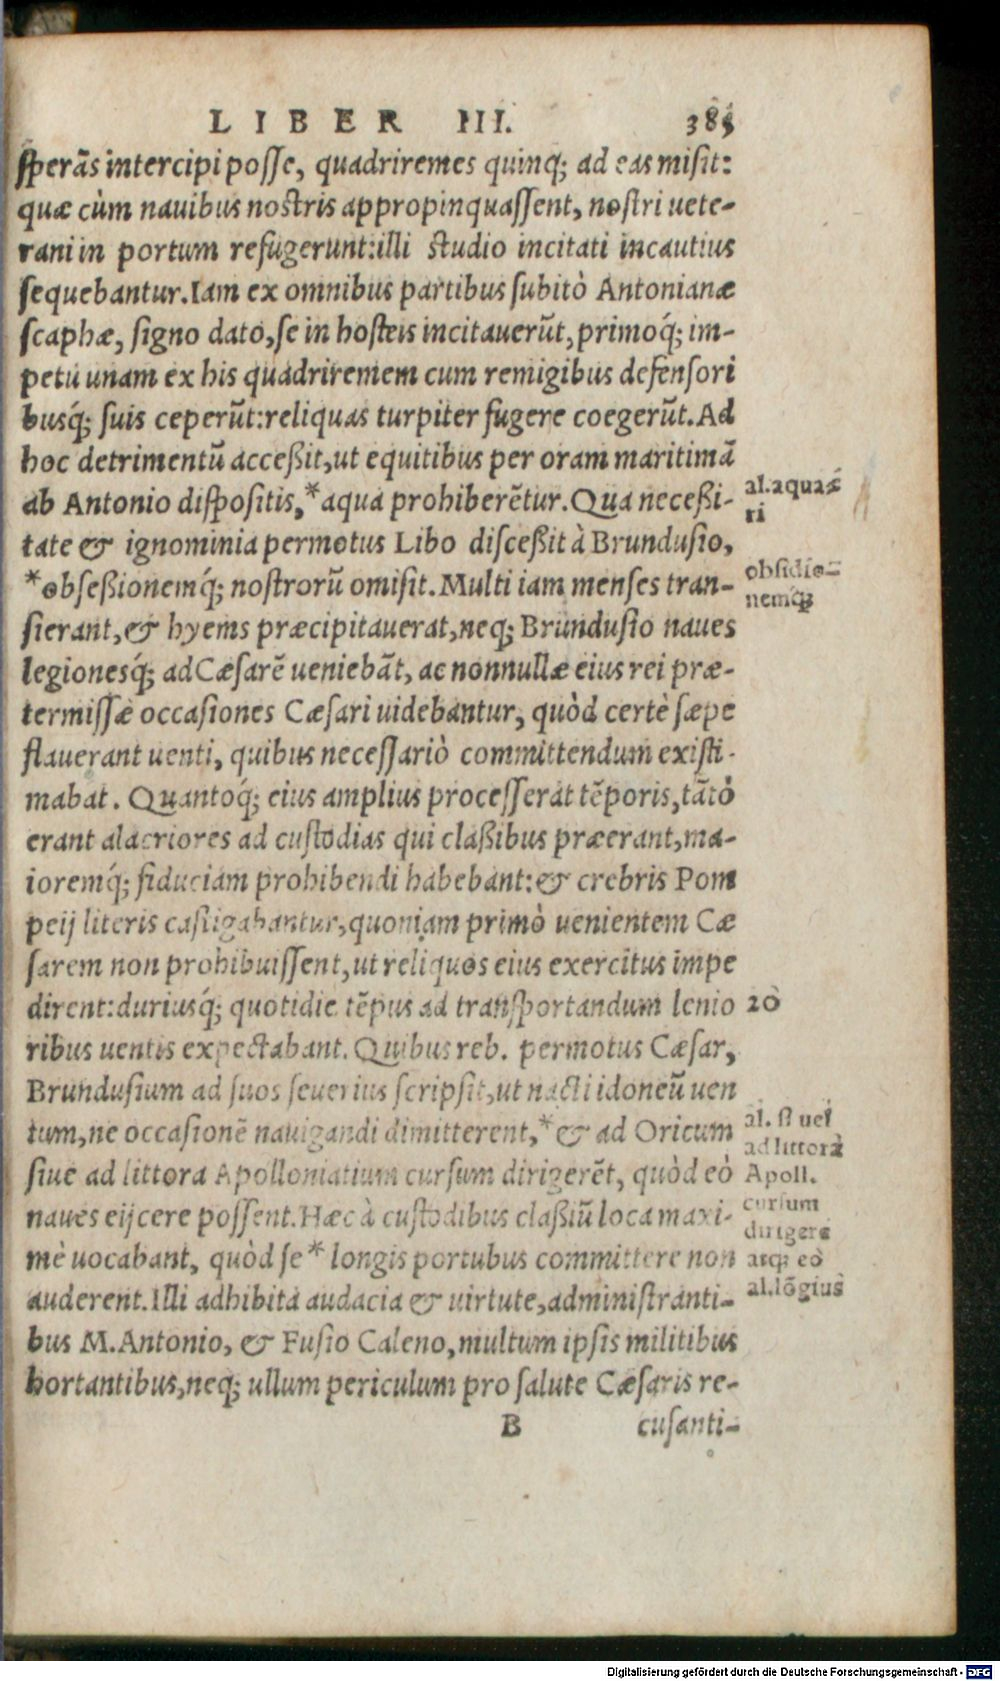 LIBER III. 385
ſperãs intercipi poſſe, quadriremes quinq; ad eas miſit:
quæ cùm nauibus noſtris appropinquaſſent, noſtri uete-
rani in portum refugerunt: illi ſtudio incitati incautius
ſequebantur. Iam ex omnibus partibus ſubitò Antonianæ
ſcaphæ, ſigno dato, ſe in hoſteis incitauerũt, primoq́; im-
petu unam ex his quadriremem cum remigibus defenſori
busq́; ſuis ceperũt: reliquas turpiter fugere coegerũt. Ad
hoc detrimentũ acceßit, ut equitibus per oram maritimã
ab Antonio diſpoſitis, * aqua prohiberẽtur. Qua neceßi-
al. aqua-
ri
tate & ignominia permotus Libo diſceßit à Brunduſio,
* obſeßionemq́; noſtrorũ omiſit. Multi iam menſes tran-
obſidio-
nemq́;
ſierant, & hyems præcipitauerat, neq; Brunduſio naues
legionesq́; ad Cæſarẽ ueniebãt, ac nonnullæ eius rei præ-
termiſſæ occaſiones Cæſari uidebantur, quòd certè ſæpe
flauerant uenti, quibus neceſſariò committendum exiſti-
mabat. Quantoq́; eius amplius proceſſerat tẽporis, tãtò
erant alacriores ad cuſtodias qui claßibus præerant, ma-
ioremq́; fiduciam prohibendi habebant: & crebris Pom
peij literis caſtigabantur, quoniam primò uenientem Cæ
ſarem non prohibuiſſent, ut reliquos eius exercitus impe
dirent: duriusq́; quotidie tẽpus ad tranſportandum lenio 20
ribus uentis expectabant. Quibus reb. permotus Cæſar,
Brunduſium ad ſuos ſeuerius ſcripſit, ut nacti idoneũ uen
tum, ne occaſionẽ nauigandi dimitterent, * & ad Oricum
ſiue ad littora Apolloniatium curſum dirigerẽt, quòd eò
naues eijcere poſſent. Hæc à cuſtodibus claßiũ loca maxi-
mè uocabant, quòd ſe * longis portubus committere non
al. ſi uel
ad littora
Apoll.
curſum
dirigere
atq; eò
al. lõgius
auderent. Illi adhibita audacia & uirtute, adminiſtranti-
bus M. Antonio, & Fuſio Caleno, multum ipſis militibus
hortantibus, neq; ullum periculum pro ſalute Cæſaris re-
B cuſanti-
Digitalisierung gefördert durch die Deutsche Forschungsgemeinschaft - DFG